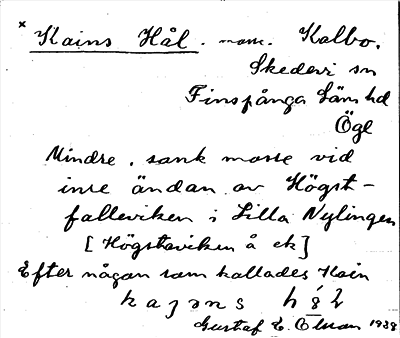 x Kains Hål. mosse. Kalbo.
Skedevi sn
Finspånga läns hd
Ögl
Mindre, sank mosse vid
inre ändan av Högst-
falleviken i Lilla Nylingen
[Högstaviken å ek]
Efter någon som kallades Kain
Gustaf E. Olsson 1938